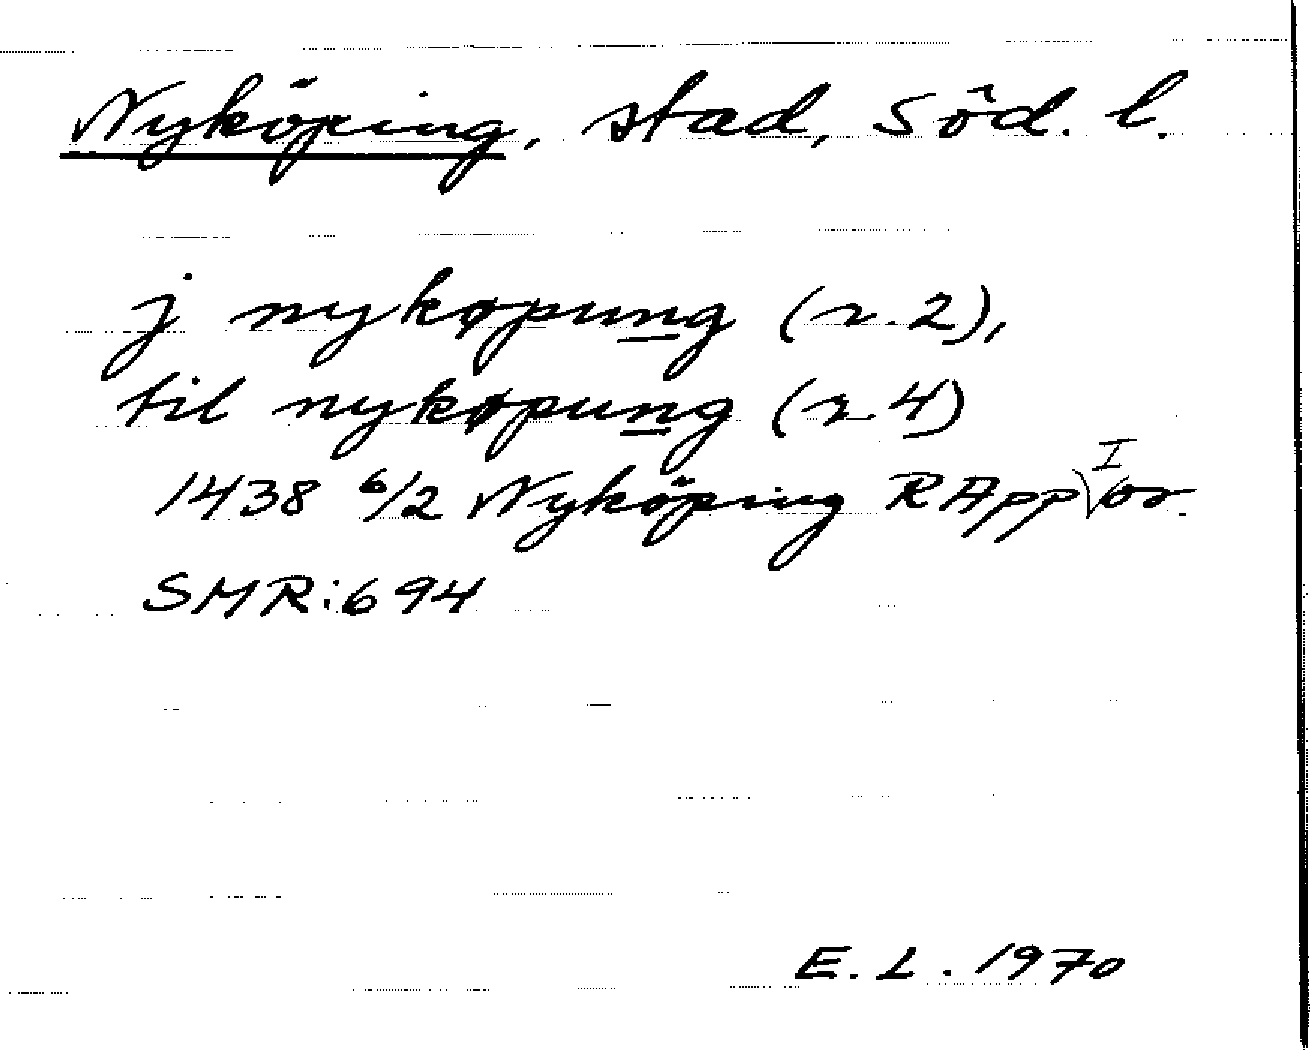 Nyköping, stad, Söd. l.
j nykøpung (r. 2),
til nykøpung (r. 4)
1438 6/2 Nyköping RApp I or.
SMR: 694
E. L. 1970